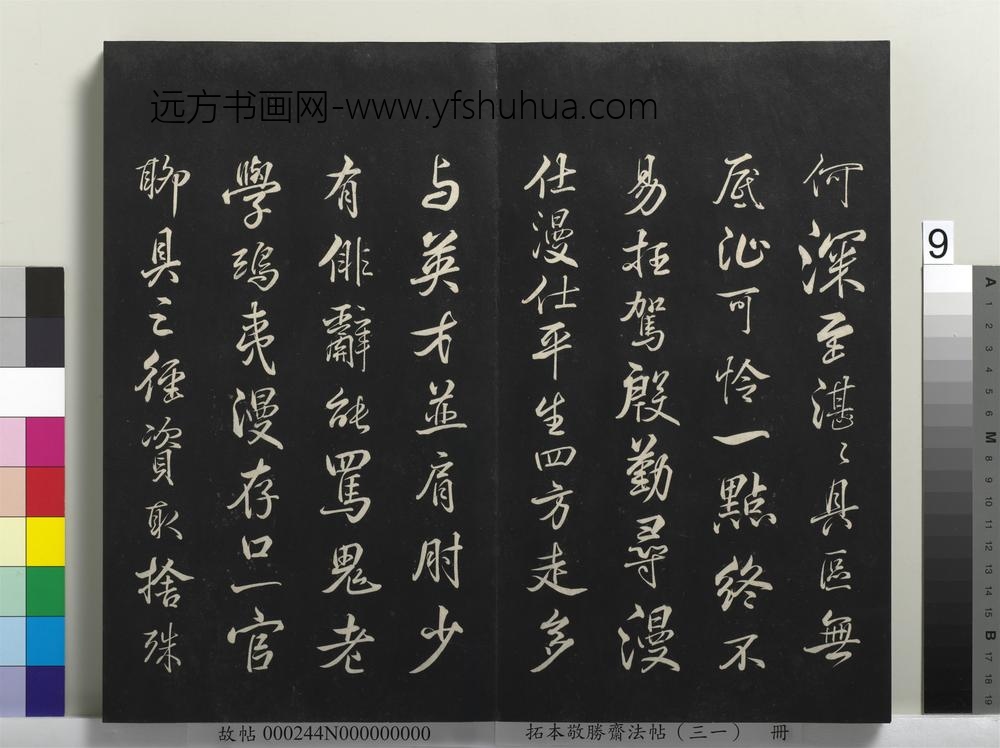 远方书画网-www.yfshuhua.com
何深至湛〻具區無
底沚可怜一點終不
易枉駕殷勤尋漫
仕漫仕平生四方走多
与英才並肩肘少
有俳辭能罵鬼老
學鴟夷漫存口一官
聊具三徑資取捨殊
故帖 000244N000000000
拓本敬勝齋法帖(三一) 冊
9
A 1 2 3 4 5 6 M 8 9 10 11 12 13 14 15 B 17 18 19